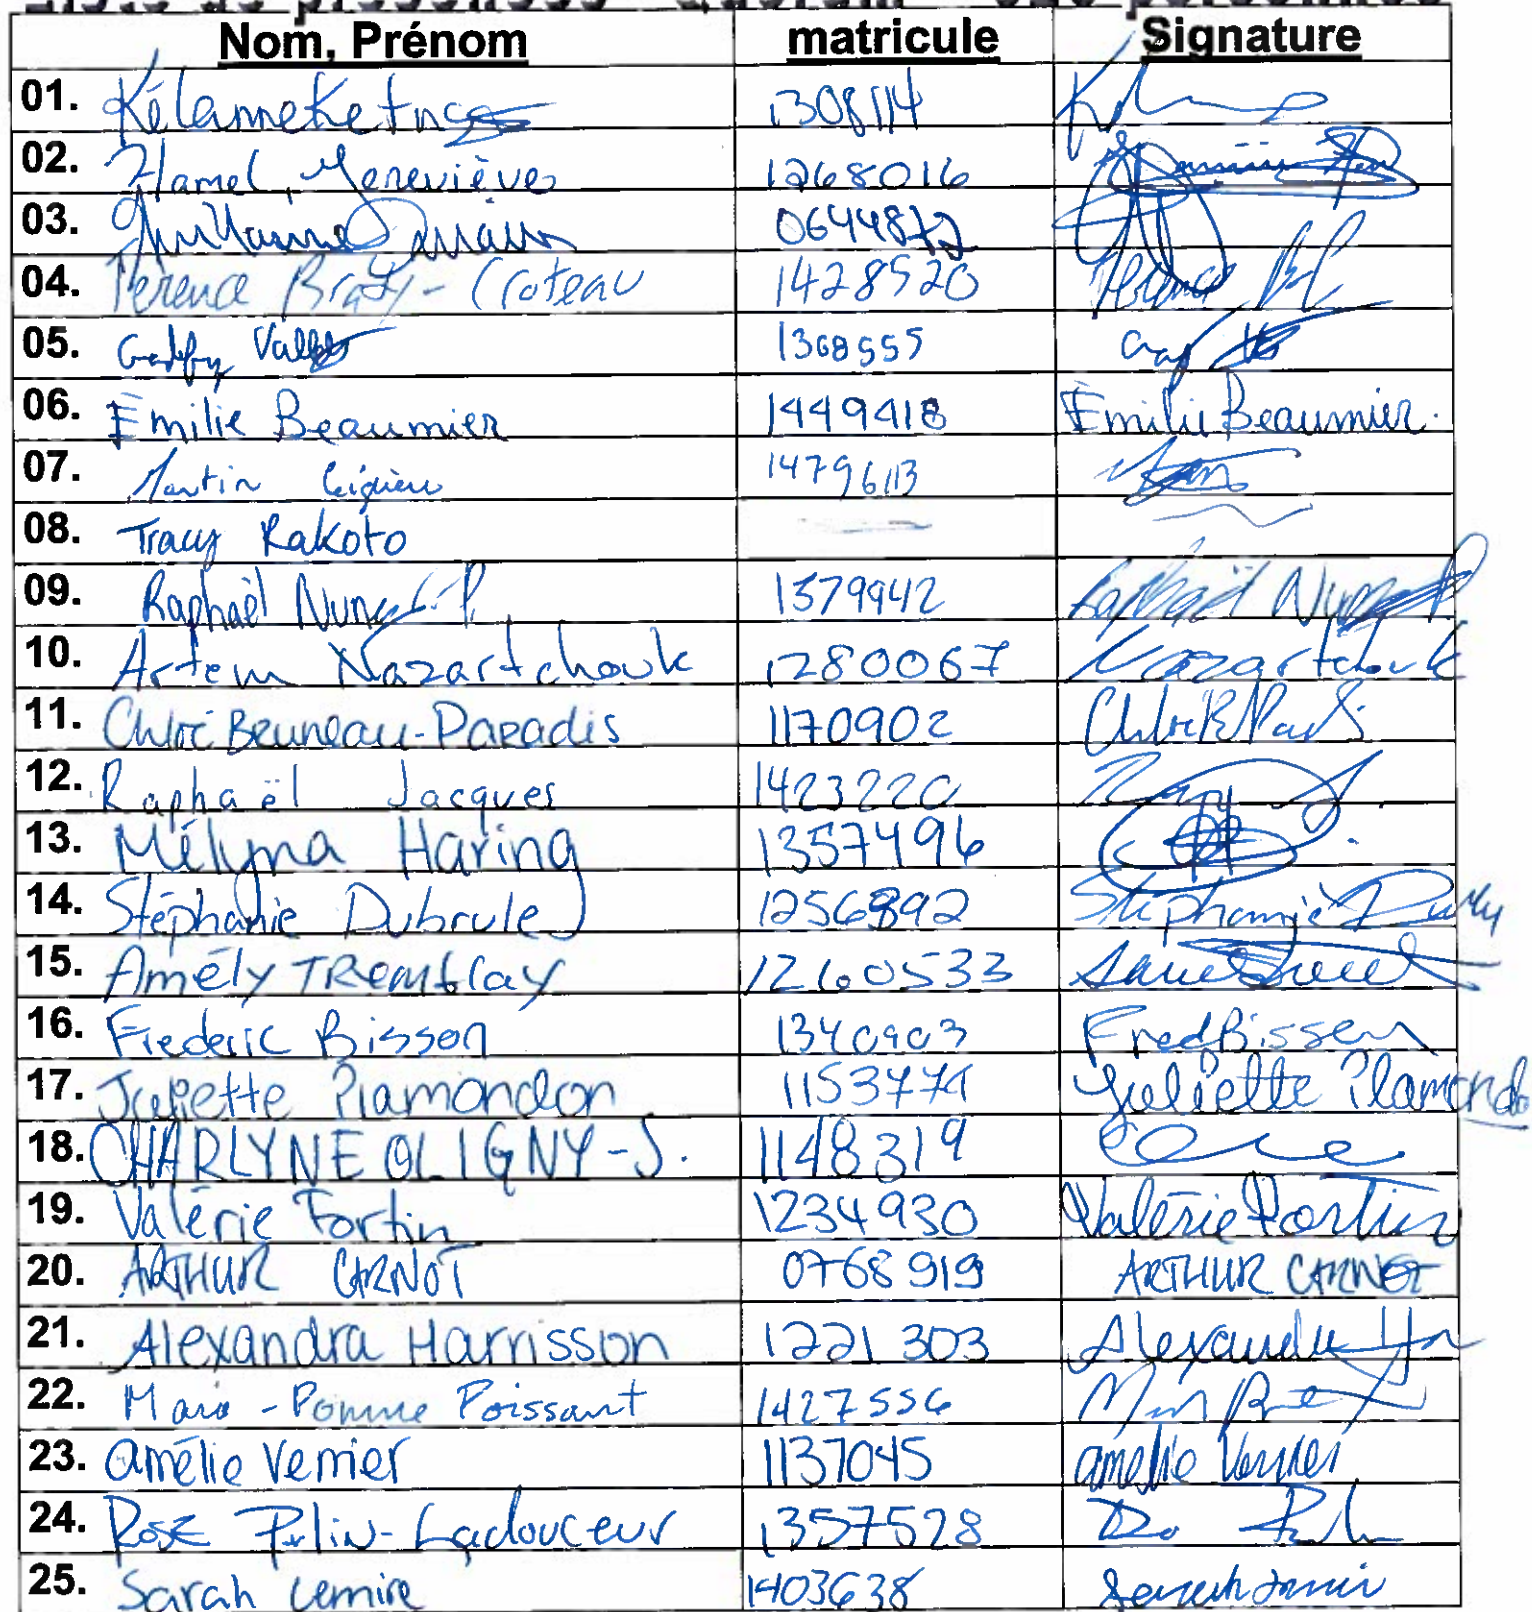 Liste de présences Quorum personnes
Nom, Prénom matricule Signature
01. Kélanne Ketn 1308114
02. Hamel, Geneviève 1268016
03. Guillaume 0644872
04. Térence Brady-Croteau 1428520
05. 1368555
06. Emilie Beaumier 1449418 Emilie Beaumier
07. Martin Giguère 1479613
08. Tracy Rakoto
09. Raphaël Nunes 1379942 Raphaël Nunes
10. Artem Nazartchouk 1280067 Nazartchouk
11. Chloé Bruneau-Paradis 1170902
12. Raphaël Jacques 1423220
13. Mélyna Haring 1357496
14. Stéphanie Dubrule 1256892 Stéphanie
15. Amély TREMblay 1260533
16. Frederic Bisson 1340903 Fred Bisson
17. Juliette Plamondon 1153774 Juliette Plamondo
18. CHARLYNE OLIGNY-J. 1148319
19. Valérie Fortin 1234930 Valérie Fortin
20. ARTHUR CARNOT 0768919 ARTHUR CARNOT
21. Alexandra Harrisson 1221303 Alexandra
22. Marie-Pomme Poissant 1427556
23. Amélie Verrier 1137045 Amélie Verrier
24. Rose Pelin-Ladouceur 1357528
25. Sarah Lemire 1403638 Sarah Lemire